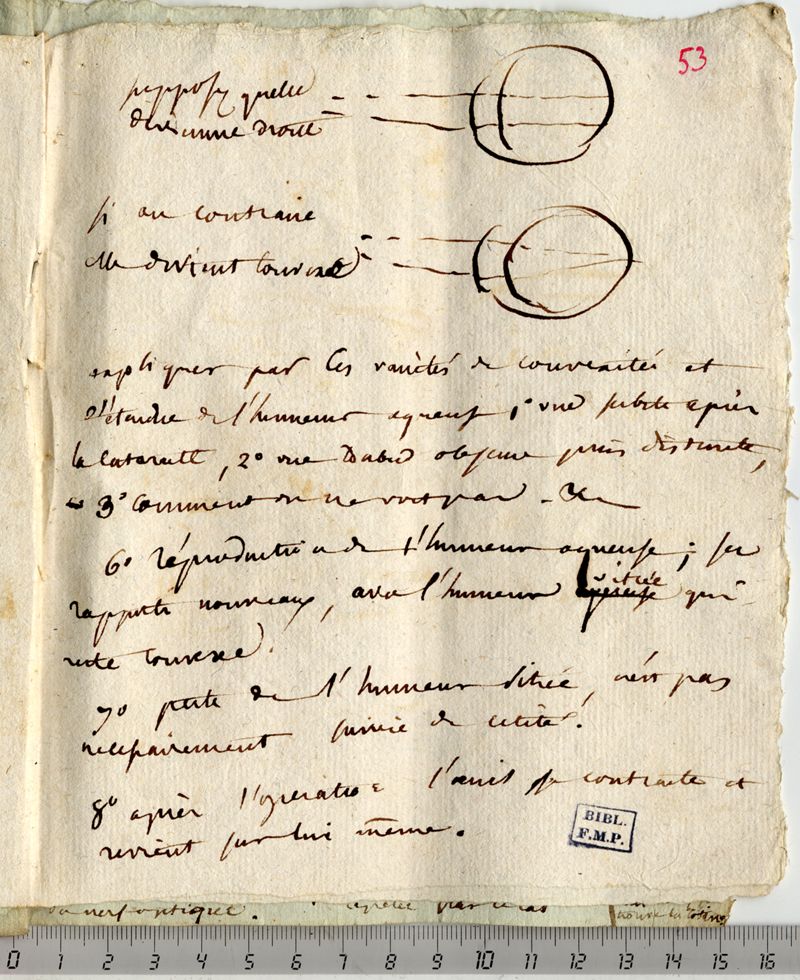 53
supposez quelle
devienne droite
si au contraire
elle devient convexe
expliquer par ces variétés de convexités et
d'étendue de l'humeur aqueuse, 1° vue subite après
la cataracte, 2° vue d'abord obscure puis distincte,
3° comment on ne voit pas - &c
6° réproduction de l'humeur aqueuse; ses
rapports nouveaux, avec l'humeur vitrée qui
reste convexe.
7° perte de l'humeur vitrée, n'est pas
necessairement suivie de cécité.
8° après l'operation l'œuil se contracte et
revient sur lui même.
BIBL.
F.M.P.
du nerf optique.
0 1 2 3 4 5 6 7 8 9 10 11 12 13 14 15 16